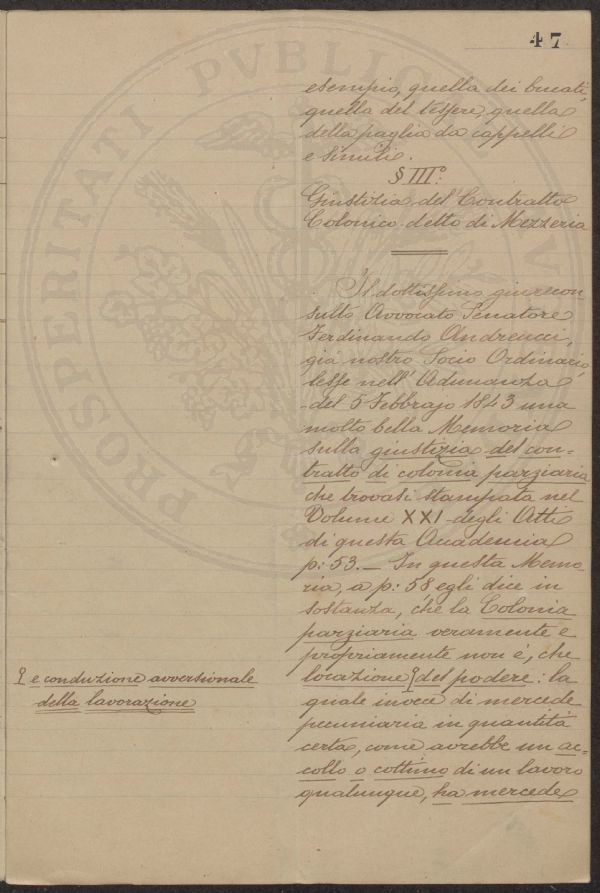 47
esempio, quella dei bucati,
quella del tessere, quella
della paglia da cappelli
e simili.
§ III°:
Giustizia del Contratto
Colonico detto di Mezzeria
Il dottissimo giurecon-
sulto Avvocato Senatore
Ferdinando Andreucci,
già nostro Socio Ordinario,
lesse nell' Adunanza
del 5 Febbrajo 1843 una
molto bella Memoria
sulla giustizia del con=
tratto di colonia parziaria
che trovasi stampata nel
Volume XXI degli Atti
di questa Accademia
p: 53. — In questa Memo-
ria, a p: 58 egli dice in
sostanza, che la Colonia
parziaria veramente e
propriamente non è, che
locazione { del podere: la
quale invece di mercede
pecuniaria in quantità
certa, come avrebbe un ac=
collo o cottimo di un lavoro
qualunque, ha mercede
{ e conduzione avversionale
della lavorazione
PROSPERITATI PVBLICAE